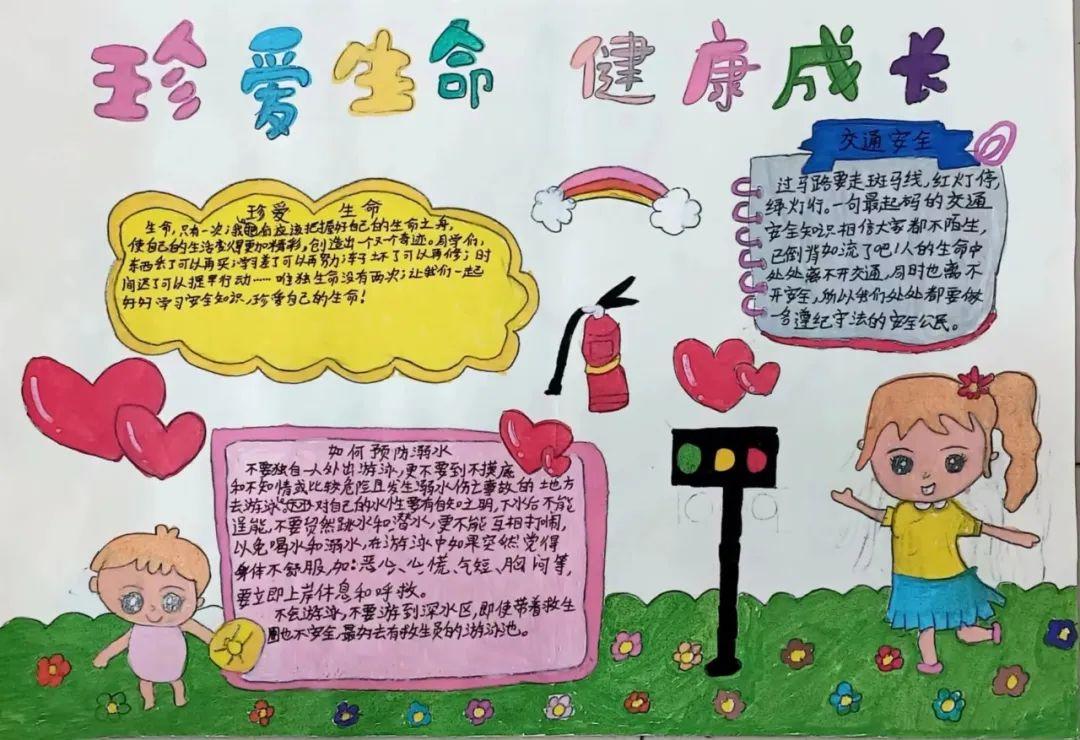 珍爱生命 健康成长
珍爱 生命
生命,只有一次;我们应该把握好自己的生命之舟,
使自己的生活变得更加精彩,创造出一个又一个奇迹。同学们,
东西丢了可以再买;学习差了可以再努力;车子坏了可以再修;时
间迟了可以提早行动……唯独生命没有两次;让我们一起
好好学习安全知识,珍爱自己的生命!
交通安全
过马路要走斑马线,红灯停,
绿灯行。一句最起码的交通
安全知识相信大家都不陌生,
已倒背如流了吧!人的生命中
处处离不开交通,同时也离不
开安全,所以我们处处都要做
一名遵纪守法的安全公民。
如何预防溺水
不要独自一人外出游泳,更不要到不摸底
和不知情或比较危险且发生溺水伤亡事故的地方
去游泳。对自己的水性要有自知之明,下水后不能
逞能,不要贸然跳水和潜水,更不能互相打闹,
以免喝水和溺水,在游泳中如果突然觉得
身体不舒服,如:恶心、心慌、气短、胸闷等,
要立即上岸休息和呼救。
不会游泳,不要游到深水区,即使带着救生
圈也不安全,最好去有救生员的游泳池。